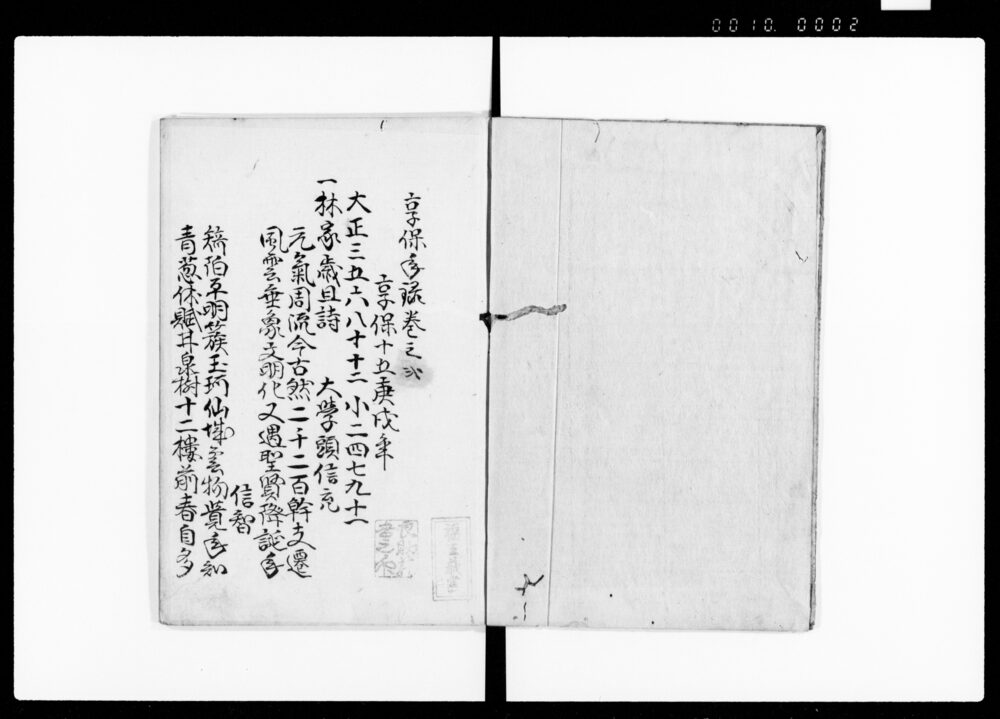 0010. 0002
享保年録巻之弐
享保十五庚戌年
大正三五六八十十二 小二四七九十一
一林家歳旦詩 大学頭信充
元氣周流今古然二千二百幹支遷
風雲垂象文明化又遇聖賢降誕年
信智
平明簇玉珂仙城雲物覚年和
青葱休賦甘泉樹十二樓前春自多